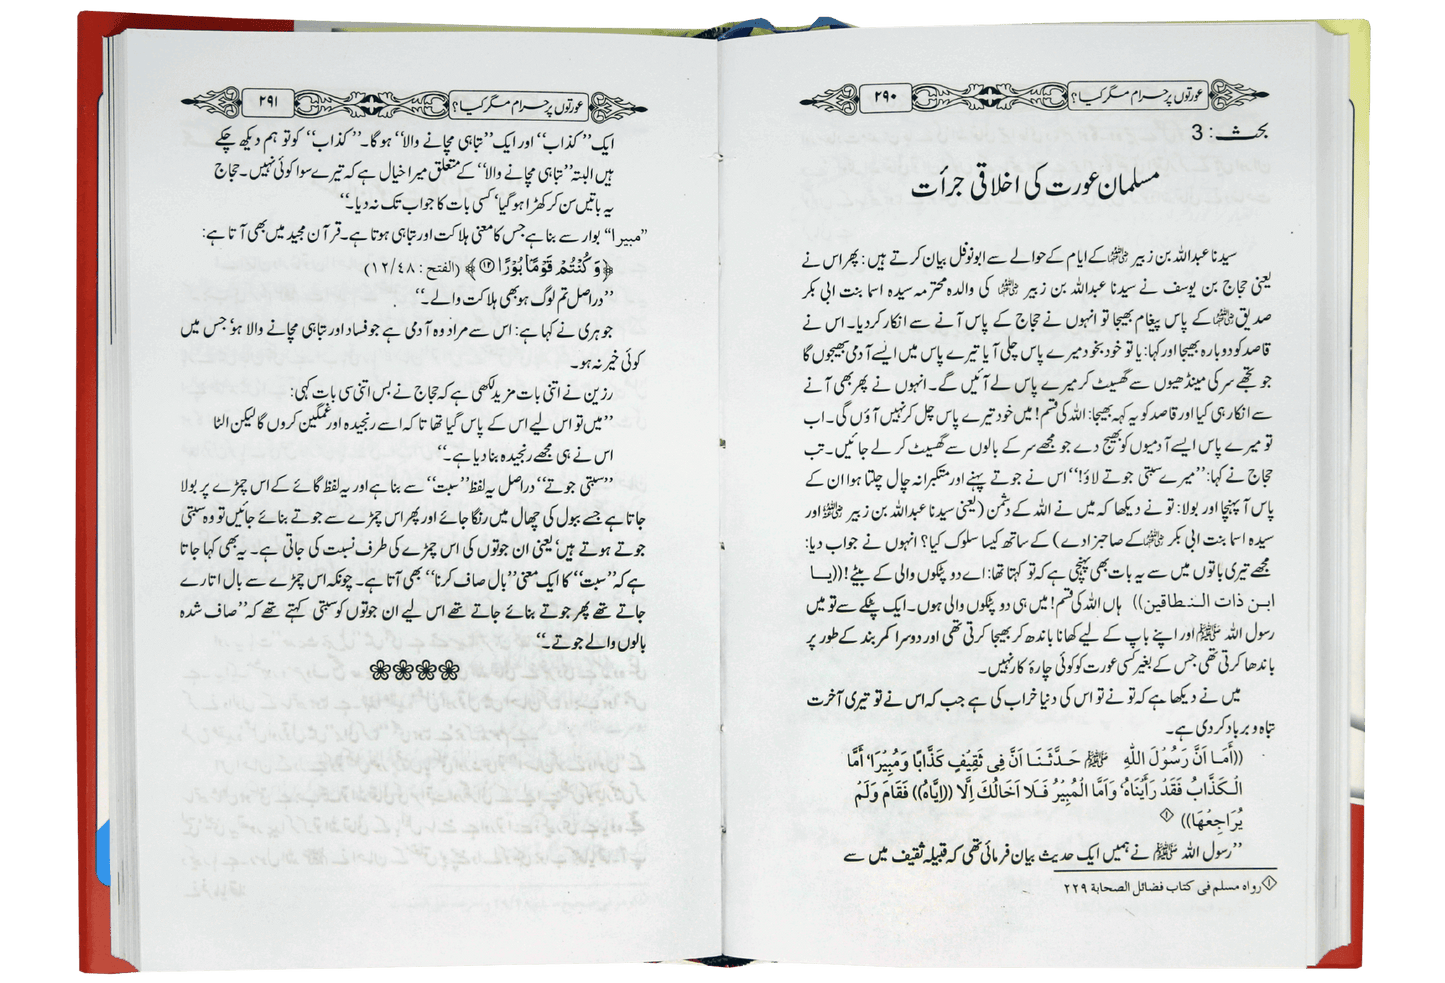 عورتوں پر حرام مگر کیا؟
۲۹۰
بحث : 3
مسلمان عورت کی اخلاقی جرأت
سیدنا عبداللہ بن زبیر ﷜ کے ایام کے حوالے سے ابو نوفل بیان کرتے ہیں : پھر اس نے
یعنی حجاج بن یوسف نے سیدنا عبداللہ بن زبیر ﷜ کی والدہ محترمہ سیدہ اسما بنت ابی بکر
صدیق ﷜ کے پاس پیغام بھیجا تو انہوں نے حجاج کے پاس آنے سے انکار کر دیا۔ اس نے
قاصد کو دوبارہ بھیجا اور کہا: یا تو خود بخود میرے پاس چلی آ یا تیرے پاس میں ایسے آدمی بھیجوں گا
جو تجھے سر کی مینڈھیوں سے گھسیٹ کر میرے پاس لے آئیں گے۔ انہوں نے پھر بھی آنے
سے انکار ہی کیا اور قاصد کو یہ کہہ بھیجا: اللہ کی قسم! میں خود تیرے پاس چل کر نہیں آؤں گی۔ اب
تو میرے پاس ایسے آدمیوں کو بھیج دے جو مجھے سر کے بالوں سے گھسیٹ کر لے جائیں۔ تب
حجاج نے کہا: ’’میرے سبتی جوتے لاؤ!‘‘ اس نے جوتے پہنے اور متکبرانہ چال چلتا ہوا ان کے
پاس آ پہنچا اور بولا: تو نے دیکھا کہ میں نے اللہ کے دشمن (یعنی سیدنا عبداللہ بن زبیر ﷜ اور
سیدہ اسما بنت ابی بکر ﷜ کے صاحبزادے) کے ساتھ کیسا سلوک کیا؟ انہوں نے جواب دیا:
مجھے تیری باتوں میں سے یہ بات بھی پہنچی ہے کہ تو کہتا تھا: اے دو پٹکوں والی کے بیٹے! ((یا
ابن ذات النطاقین)) ہاں اللہ کی قسم! میں ہی دو پٹکوں والی ہوں۔ ایک پٹکے سے تو میں
رسول اللہ ﷺ اور اپنے باپ کے لیے کھانا باندھ کر بھیجا کرتی تھی اور دوسرا کمر بند کے طور پر
باندھا کرتی تھی جس کے بغیر کسی عورت کو کوئی چارۂ کار نہیں۔
میں نے دیکھا ہے کہ تو نے تو اس کی دنیا خراب کی ہے جب کہ اس نے تو تیری آخرت
تباہ و برباد کر دی ہے۔
((أَمَا اَنَّ رَسُوْلَ اللّٰهِ ﷺ حَدَّثَنَا اَنَّ فِی ثَقِيْفٍ كَذَّابًا وَمُبِيْرًا، أَمَّا
الْكَذَّابُ فَقَدْ رَأَيْنَاهُ، وَاَمَّا الْمُبِيْرُ فَلَا اَخَالُكَ اِلَّا ((اِيَّاهُ)) فَقَامَ وَلَمْ
يُرَاجِعْهَا)) ۱
’’رسول اللہ ﷺ نے ہمیں ایک حدیث بیان فرمائی تھی کہ قبیلہ ثقیف میں سے
۱ رواه مسلم فی کتاب فضائل الصحابة ۲۲۹
عورتوں پر حرام مگر کیا؟
۲۹۱
ایک ’’کذاب‘‘ اور ایک ’’تباہی مچانے والا‘‘ ہو گا۔ ’’کذاب‘‘ کو تو ہم دیکھ چکے
ہیں البتہ ’’تباہی مچانے والا‘‘ کے متعلق میرا خیال ہے کہ تیرے سوا کوئی نہیں۔ حجاج
یہ باتیں سن کر کھڑا ہو گیا، کسی بات کا جواب تک نہ دیا۔‘‘
’’مبیرا‘‘ بوار سے بنا ہے جس کا معنی ہلاکت اور تباہی ہوتا ہے۔ قرآن مجید میں بھی آتا ہے:
﴿وَكُنْتُمْ قَوْمًا بُوْرًا ۝۱۲﴾ (الفتح : ۱۲/۴۸)
’’دراصل تم لوگ ہو بھی ہلاکت والے۔‘‘
جوہری نے کہا ہے: اس سے مراد وہ آدمی ہے جو فساد اور تباہی مچانے والا ہو، جس میں
کوئی خیر نہ ہو۔
رزین نے اتنی بات مزید لکھی ہے کہ حجاج نے بس اتنی سی بات کہی:
’’میں تو اس لیے اس کے پاس گیا تھا تا کہ اسے رنجیدہ اور غمگین کروں گا لیکن الٹا
اس نے ہی مجھے رنجیدہ بنا دیا ہے۔‘‘
’’سبتی جوتے‘‘ دراصل یہ لفظ ’’سبت‘‘ سے بنا ہے اور یہ لفظ گائے کے اس چمڑے پر بولا
جاتا ہے جسے ببول کی چھال میں رنگا جائے اور پھر اس چمڑے سے جوتے بنائے جائیں تو وہ سبتی
جوتے ہوتے ہیں، یعنی ان جوتوں کی اس چمڑے کی طرف نسبت کی جاتی ہے۔ یہ بھی کہا جاتا
ہے کہ ’’سبت‘‘ کا ایک معنی ’’بال صاف کرنا‘‘ بھی آتا ہے۔ چونکہ اس چمڑے سے بال اتارے
جاتے تھے پھر جوتے بنائے جاتے تھے اس لیے ان جوتوں کو سبتی کہتے تھے کہ ’’صاف شدہ
بالوں والے جوتے۔‘‘